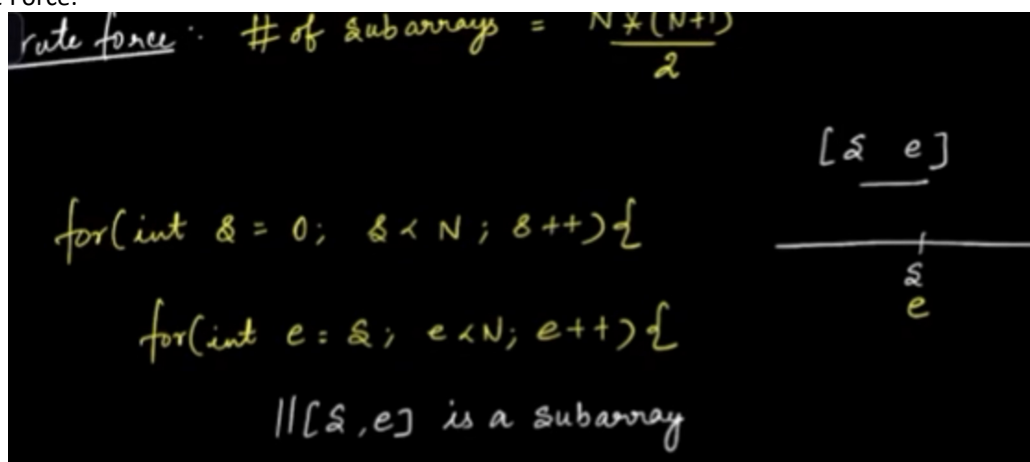 Force:
rute force : # of subarrays = N * (N+1)
2
[s e]
for(int s = 0; s < N ; s++){
s
e
for(int e = s; e<N; e++){
//[s,e] is a subarray